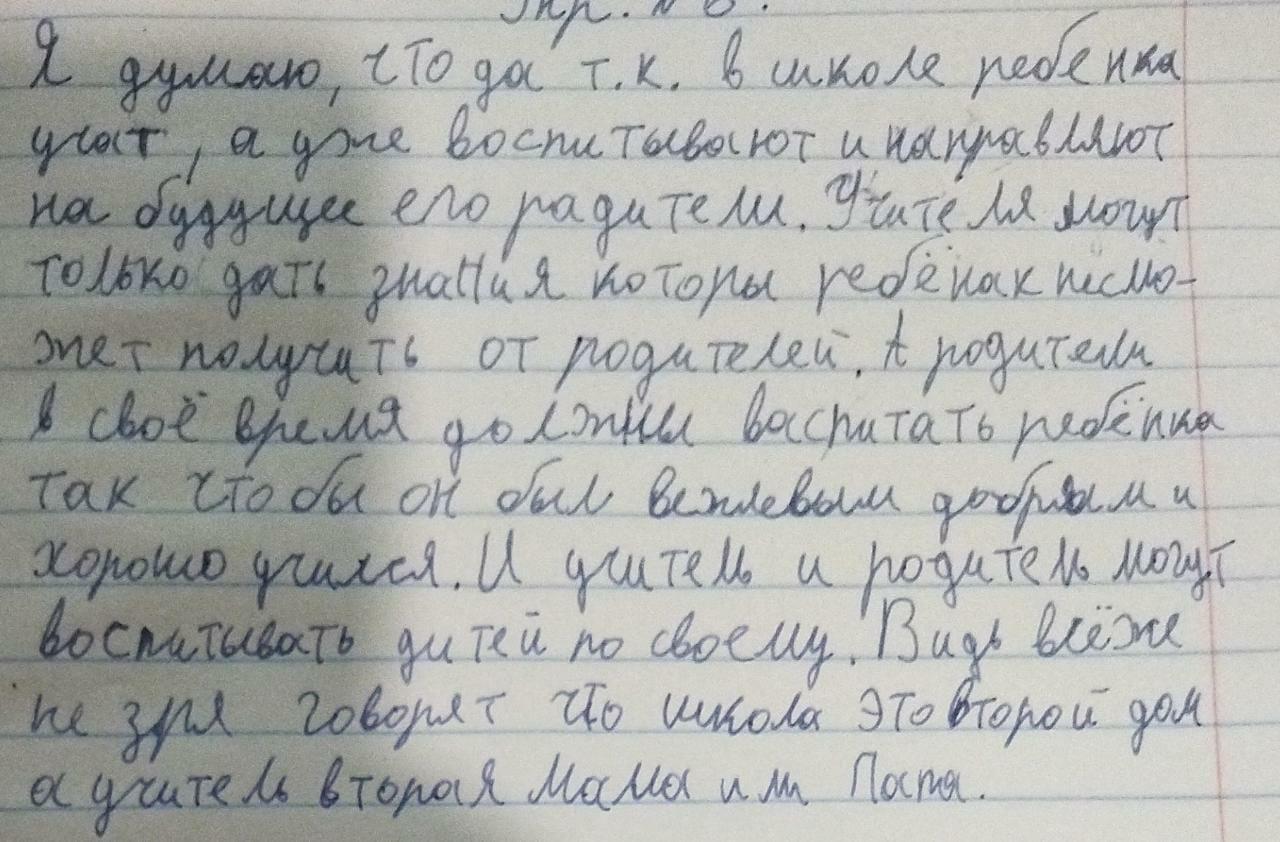 Упр. №6.
Я думаю, что да т.к. в школе ребенка
учат, а уже воспитывают и направляют
на будущее его радители. Учителя могут
только дать знания которы ребёнак несмо-
жет получить от родителей. А родители
в своё время должны васпитать ребёнка
так чтобы он был вежлевым добрым и
хорошо учился. И учитель и родитель могут
воспитывать дитей по своему. Видь всёже
не зря говорят что школа это второй дом
а учитель вторая Мама или Папа.